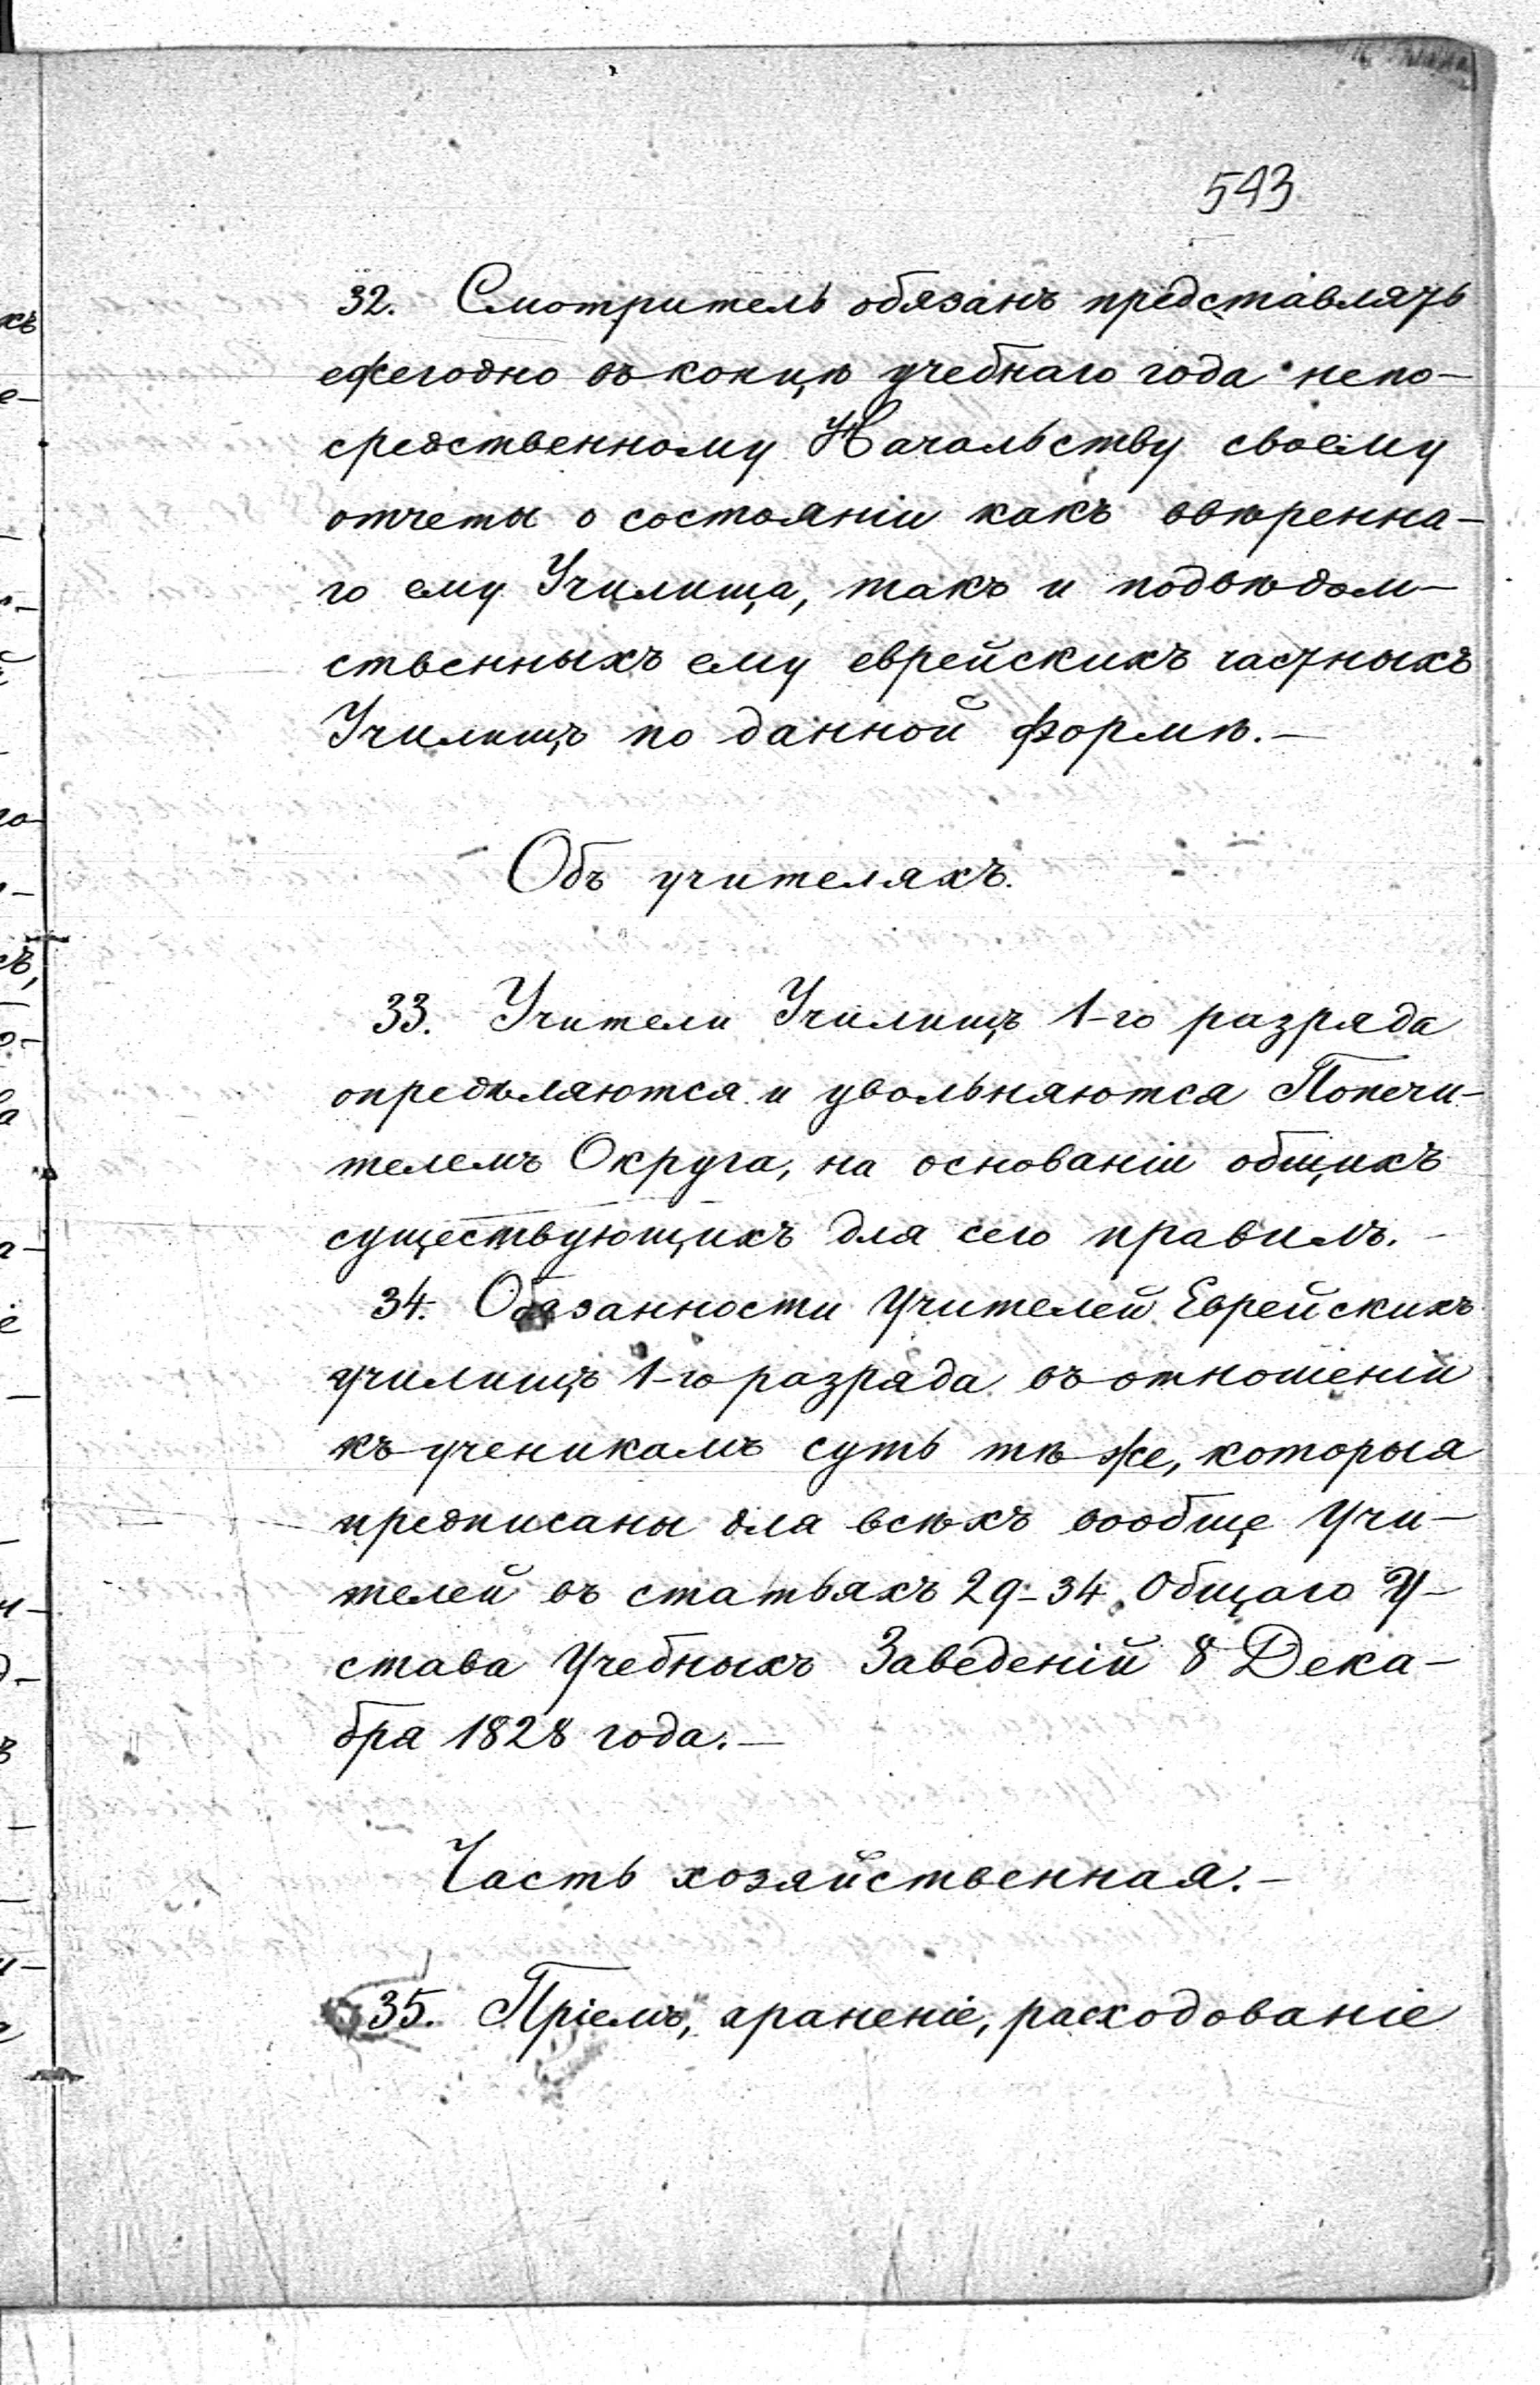 543
32. Смотритель обязанъ представлять
ежегодно въ концѣ учебнаго года непо-
средственному Начальству своему
отчеты о состояніи какъ ввѣренна-
го ему Училища, такъ и подвѣдом-
ственныхъ ему еврейскихъ частныхъ
Училищъ по данной формѣ.—
Объ учителяхъ.
33. Учители Училищъ 1-го разряда
опредѣляются и увольняются Попечи-
телемъ Округа, на основаніи общихъ
существующихъ для сего правилъ.
34. Обязанности Учителей Еврейскихъ
училищъ 1-го разряда въ отношеніи
къ ученикамъ суть тѣ же, которыя
предписаны для всѣхъ вообще Учи-
телей въ статьяхъ 29-34 Общаго У-
става Учебныхъ Заведеній 8 Дека-
бря 1828 года.—
Часть хозяйственная.—
35. Пріемъ, храненіе, расходованіе